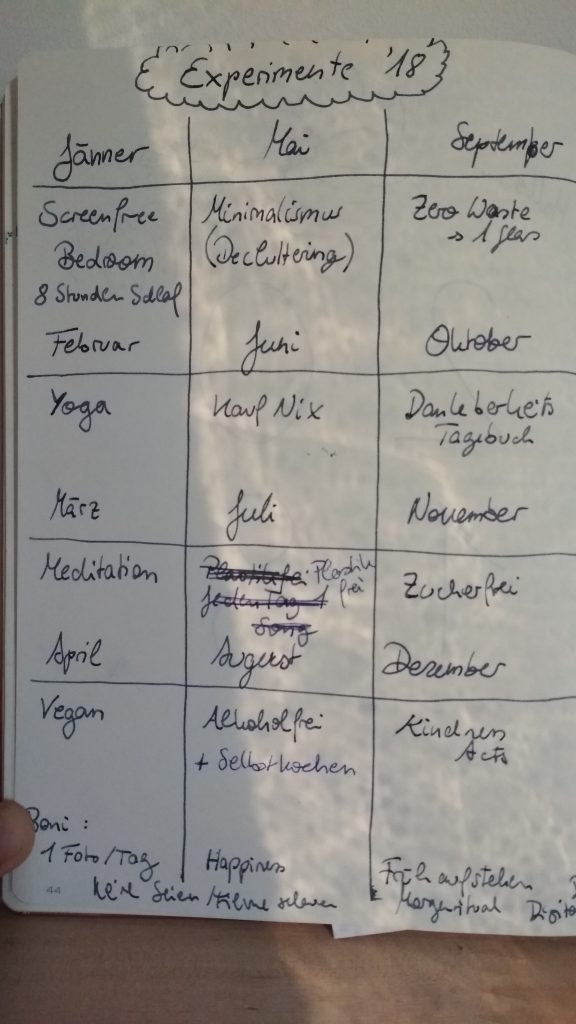 Experimente '18
Jänner
Screenfree
Bedroom
8 Stunden Schlaf
Februar
Yoga
März
Meditation
April
Vegan
Mai
Minimalismus
(Decluttering)
Juni
Kauf Nix
Juli
Plastikfrei Plastik
frei
Jeden Tag 1
Song
August
Alkoholfrei
+ Selbstkochen
September
Zero Waste
→ 1 Glas
Oktober
Dankbarkeits
Tagebuch
November
Zuckerfrei
Dezember
Kindness
Acts
Boni :
1 Foto/Tag
Happiness
Früh aufstehen
Keine Serien / Filme schauen
Morgenritual
44